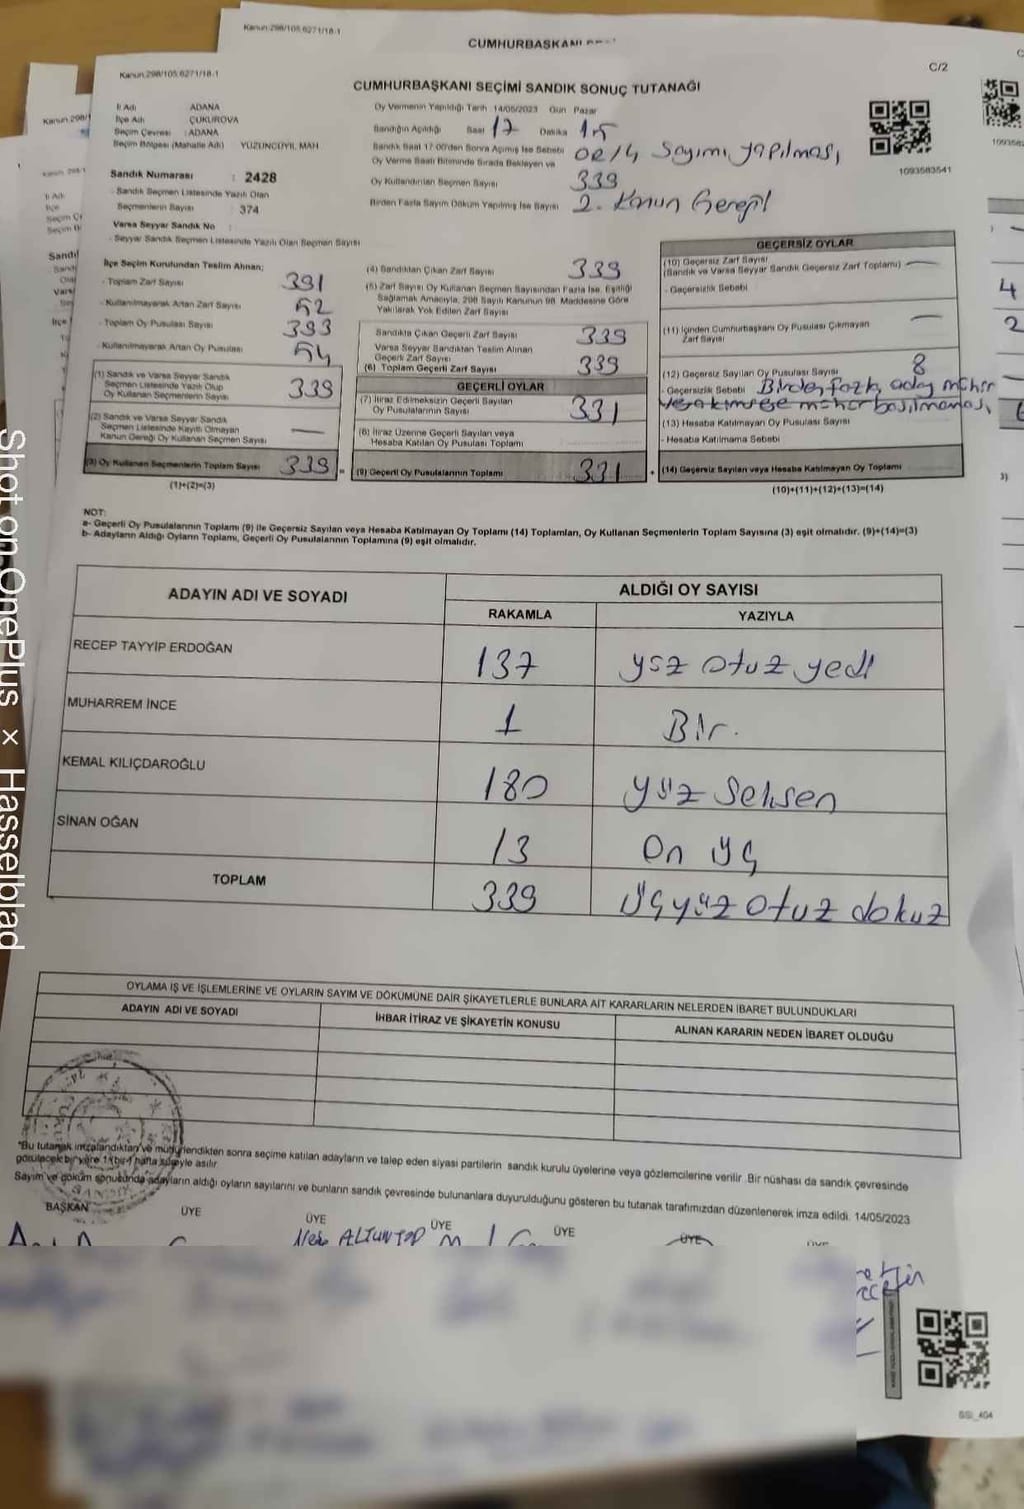 Kanun:298/105;6271/18-1
CUMHURBAŞKANI
Kanun:298/105;6271/18-1
C/2
CUMHURBAŞKANI SEÇİMİ SANDIK SONUÇ TUTANAĞI
İl Adı ADANA
İlçe Adı ÇUKUROVA
Seçim Çevresi : ADANA
Seçim Bölgesi (Mahalle Adı) YÜZÜNCÜYIL MAH.
Sandık Numarası : 2428
- Sandık Seçmen Listesinde Yazılı Olan
Seçmenlerin Sayısı : 374
Varsa Seyyar Sandık No :
- Seyyar Sandık Seçmen Listesinde Yazılı Olan Seçmen Sayısı
Oy Vermenin Yapıldığı Tarih 14/05/2023 Gün Pazar
Sandığın Açıldığı Saat 17 Dakika 15
Sandık Saat 17:00'den Sonra Açılmış İse Sebebi
Sayımı yapılması,
Oy Verme Saati Bitiminde Sırada Bekleyen ve
Oy Kullandırılan Seçmen Sayısı 339
Birden Fazla Sayım Döküm Yapılmış İse Sayısı 2. Kanun Gereği
1093583541
İlçe Seçim Kurulundan Teslim Alınan;
- Toplam Zarf Sayısı 391
- Kullanılmayarak Artan Zarf Sayısı 52
- Toplam Oy Pusulası Sayısı 393
- Kullanılmayarak Artan Oy Pusulası 54
(1) Sandık ve Varsa Seyyar Sandık
Seçmen Listesinde Yazılı Olup
Oy Kullanan Seçmenlerin Sayısı 339
(2) Sandık ve Varsa Seyyar Sandık
Seçmen Listesinde Kayıtlı Olmayan
Kanun Gereği Oy Kullanan Seçmen Sayısı —
(3) Oy Kullanan Seçmenlerin Toplam Sayısı 339
(1)+(2)=(3)
(4) Sandıktan Çıkan Zarf Sayısı 339
(5) Zarf Sayısı Oy Kullanan Seçmen Sayısından Fazla İse, Eşitliği
Sağlamak Amacıyla, 298 Sayılı Kanunun 98. Maddesine Göre
Yakılarak Yok Edilen Zarf Sayısı
Sandıkta Çıkan Geçerli Zarf Sayısı 339
Varsa Seyyar Sandıktan Teslim Alınan
Geçerli Zarf Sayısı
(6) Toplam Geçerli Zarf Sayısı 339
GEÇERLİ OYLAR
(7) İtiraz Edilmeksizin Geçerli Sayılan
Oy Pusulalarının Sayısı 331
(8) İtiraz Üzerine Geçerli Sayılan veya
Hesaba Katılan Oy Pusulası Toplamı
= (9) Geçerli Oy Pusulalarının Toplamı 331 +
GEÇERSİZ OYLAR
(10) Geçersiz Zarf Sayısı —
(Sandık ve Varsa Seyyar Sandık Geçersiz Zarf Toplamı)
- Geçersizlik Sebebi
(11) İçinden Cumhurbaşkanı Oy Pusulası Çıkmayan —
Zarf Sayısı
(12) Geçersiz Sayılan Oy Pusulası Sayısı 8
- Geçersizlik Sebebi Birden fazla aday mühür
mühür basılmaması,
(13) Hesaba Katılmayan Oy Pusulası Sayısı
- Hesaba Katılmama Sebebi
(14) Geçersiz Sayılan veya Hesaba Katılmayan Oy Toplamı
(10)+(11)+(12)+(13)=(14)
NOT:
a- Geçerli Oy Pusulalarının Toplamı (9) ile Geçersiz Sayılan veya Hesaba Katılmayan Oy Toplamı (14) Toplamları, Oy Kullanan Seçmenlerin Toplam Sayısına (3) eşit olmalıdır. (9)+(14)=(3)
b- Adayların Aldığı Oyların Toplamı, Geçerli Oy Pusulalarının Toplamına (9) eşit olmalıdır.
ADAYIN ADI VE SOYADI
ALDIĞI OY SAYISI
RAKAMLA YAZIYLA
RECEP TAYYİP ERDOĞAN 137 yüz otuz yedi
MUHARREM İNCE 1 Bir.
KEMAL KILIÇDAROĞLU 180 yüz seksen
SİNAN OĞAN 13 On üç
TOPLAM 339 üçyüz otuz dokuz
OYLAMA İŞ VE İŞLEMLERİNE VE OYLARIN SAYIM VE DÖKÜMÜNE DAİR ŞİKAYETLERLE BUNLARA AİT KARARLARIN NELERDEN İBARET BULUNDUKLARI
ADAYIN ADI VE SOYADI İHBAR İTİRAZ VE ŞİKAYETİN KONUSU ALINAN KARARIN NEDEN İBARET OLDUĞU
*Bu tutanak imzalandıktan ve mühürlendikten sonra seçime katılan adayların ve talep eden siyasi partilerin sandık kurulu üyelerine veya gözlemcilerine verilir. Bir nüshası da sandık çevresinde
görülecek bir yere 1 (bir) hafta süreyle asılır.
Sayım ve döküm sonucunda adayların aldığı oyların sayılarını ve bunların sandık çevresinde bulunanlara duyurulduğunu gösteren bu tutanak tarafımızdan düzenlenerek imza edildi. 14/05/2023
BAŞKAN ÜYE ÜYE ÜYE ÜYE ÜYE
ALTUNTOP
Shot on OnePlus × Hasselblad